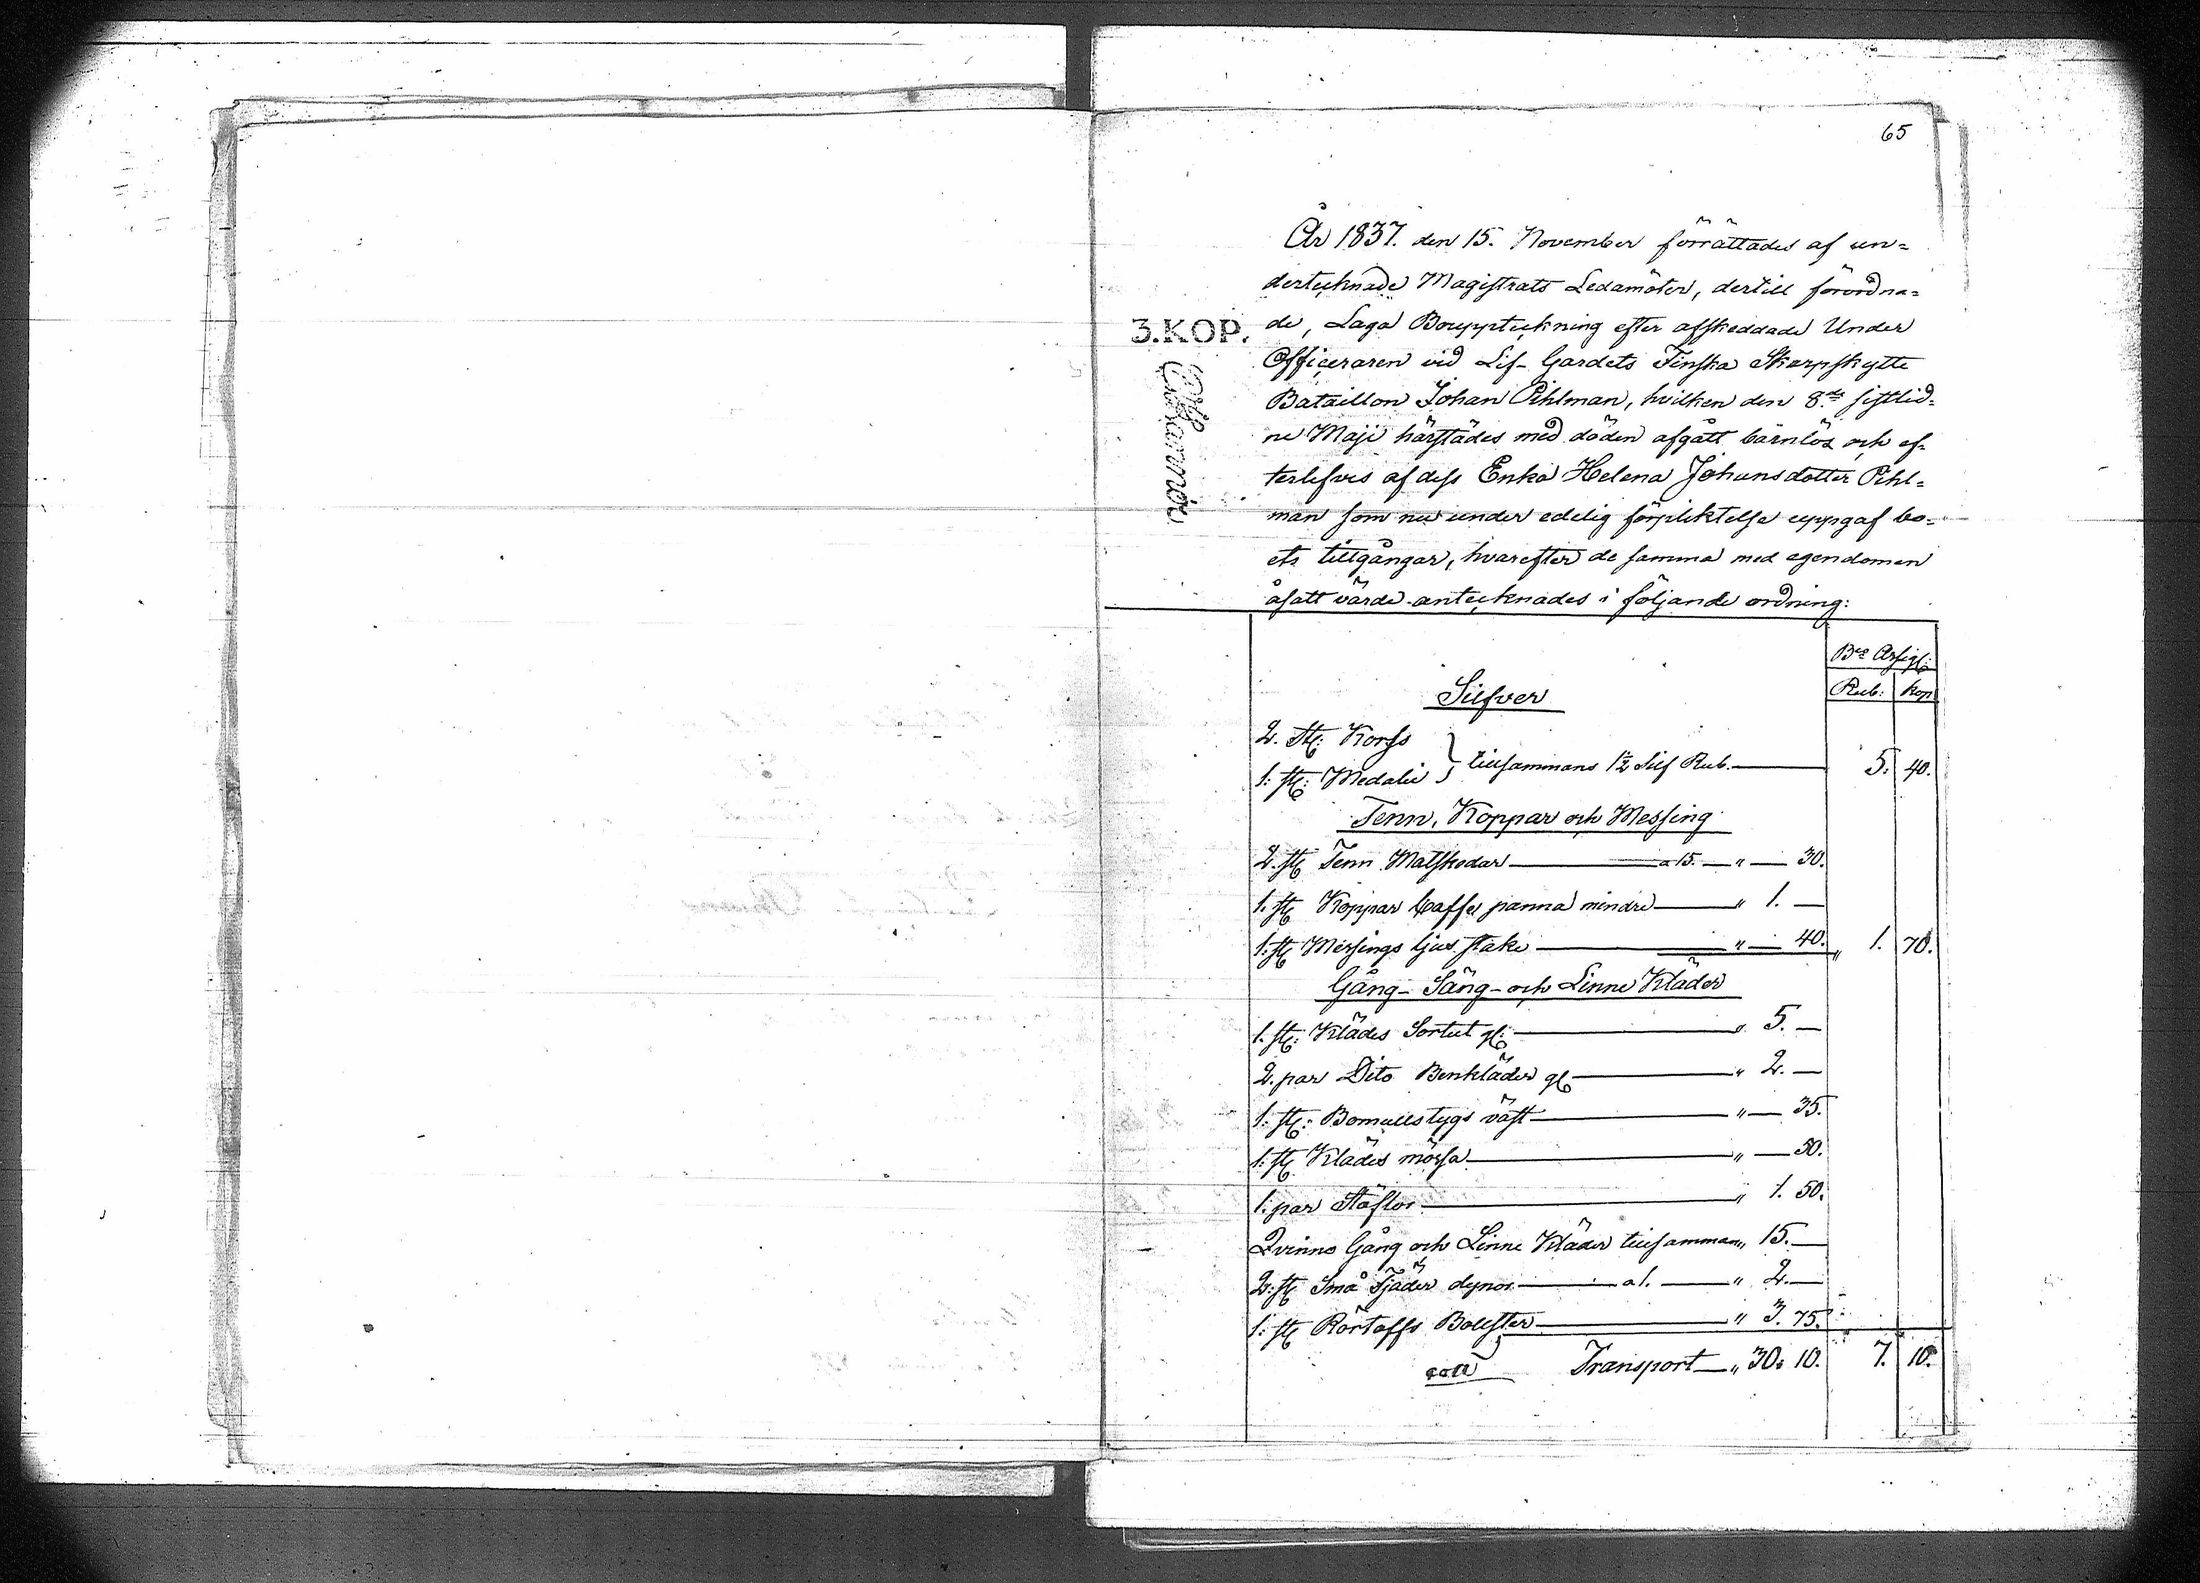 65
År 1837. den 15. November förrättades af un=
dertecknade Magistrats Ledamöter, dertill förordna=
de, Laga Bouppteckning efter afskedade Under
Officeraren vid Lif-Gardets Finska Skarpskytte
Bataillon Johan Pihlman, hvilken den 8de sistlid=
ne Maji härstädes med döden afgått barnlös, och ef=
terlefves af dess Enka Helena Johansdotter Pihl=
man som nu under edelig förpliktelse uppgaf bo=
ets tillgångar, hvarefter de samma med egendomen
åsatt värde antecknades i följande ordning:
3.KOP.
Bco Assign:
Rub: Kop
Silfver
2. st: Korss
1: st: Medalie } tillsammans 1½ Silf Rub. 5. 40.
Tenn, Koppar och Messing
2. st Tenn Matskedar a 15. " — 30.
1. st Koppar Caffe panna mindre " 1. —
1: st Messings ljus stake " — 40. " 1. 70.
Gång- Säng- och Linne Kläder
1. st: Klädes Sortut gl: " 5. —
2. par Dito Benkläder gl " 2. —
1: st: Bomullstygs väst " — 35.
1: st Klädes mössa " — 50.
1: par Stöflor " 1. 50.
Qvinno Gång och Linne Kläder tillsammans " 15. —
2: st Små Fjäder dynor a 1. " 2. —
1: st Bolster " 3. 75.
Transport " 30: 10. 7. 10.